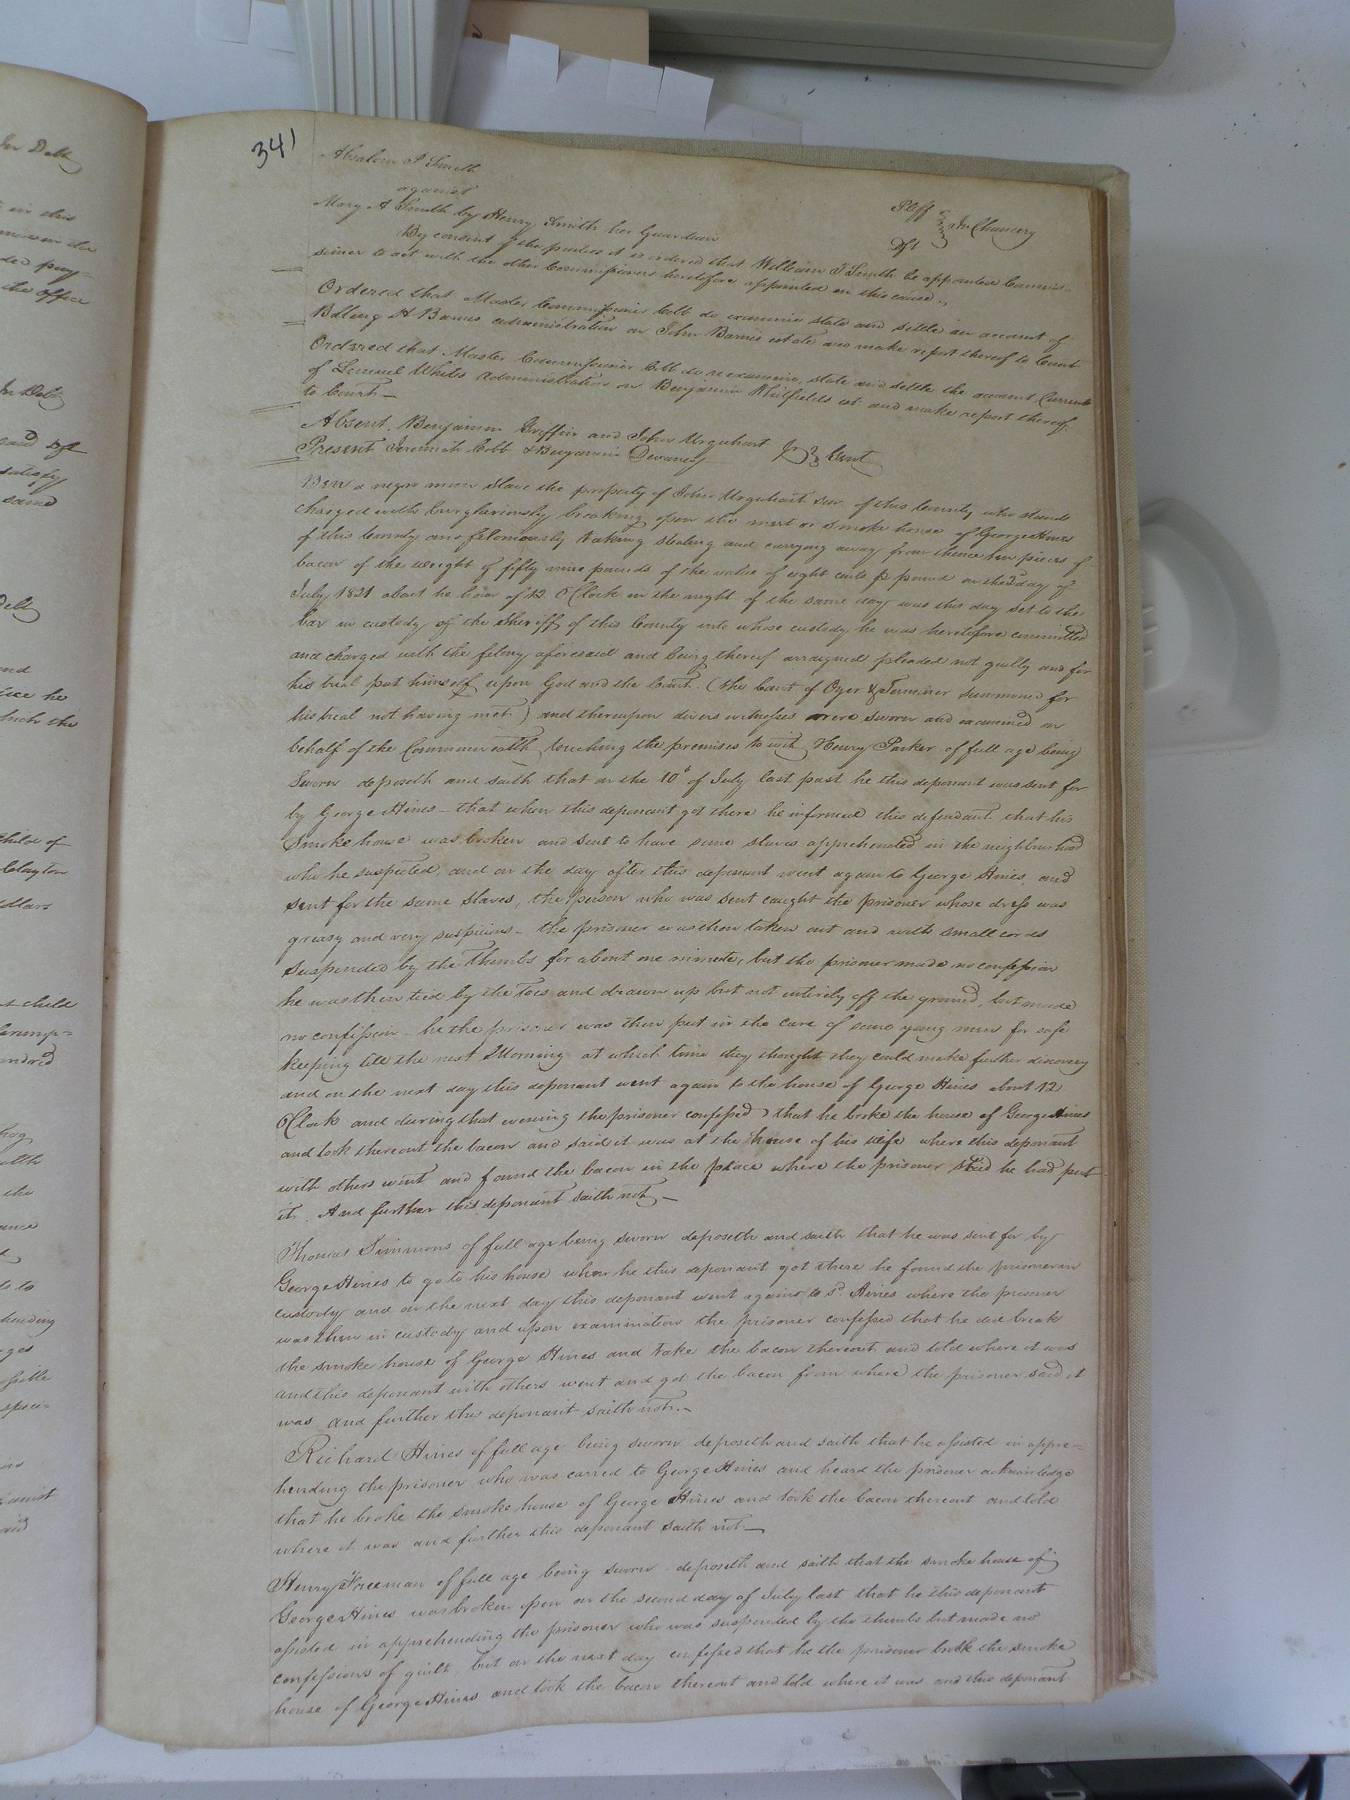 341
Absalom P Smith Pltff
against In Chancery
Mary A Smith by Henry Smith her Guardian Dft
By consent of the parties it is ordered that William T Smith be appointed Commis-
sioner to act with the other Commissioners heretofore appointed in this cause.
Ordered that Master Commissioner Cobb do examine state and settle an account of
Bolling H Barnes administration on John Barnes estate and make report thereof to Court
Ordered that Master Commissioner Cobb do reexamine, state and settle the account Current
of Lemuel Whites Administration on Benjamin Whitfields est. and make report thereof
to Court —
Absent. Benjamin Griffin and John Urquhart Gent
Present Jeremiah Cobb & Benjamin Devaney
Ben a negro man Slave the property of John Urquhart Senr. of this County who stands
charged with burglariously breaking open the meat or smoke house of George Hines
of this County and feloniously taking stealing and carrying away from thence pieces of
bacon of the weight of fifty nine pounds of the value of eight cents pr pound on the 2d day of
July 1821 about the hour of 12 OClock in the night of the same day was this day set to the
bar in custody of the Sheriff of this County into whose custody he was heretofore committed
and charged with the felony aforesaid and being thereof arraigned pleaded not guilty and for
his trial put himself upon God and the Court. (the Court of Oyer & Terminer summoned for
his trial not having met) and thereupon divers witnesses were sworn and examined on
behalf of the Commonwealth touching the premises to wit Henry Parker of full age being
Sworn deposeth and saith that on the 10th of July last past he this deponant was sent for
by George Hines — that when this deponant got there he informed this defendant that his
Smoke house was broken and sent to have some slaves apprehended in the neighbourhood
who he suspected, and on the day after this deponant went again to George Hines, and
sent for the same Slaves, the person who was sent caught the prisoner whose dress was
greasy and very suspicious — the prisoner was then taken out and with small cords
Suspended by the Thumbs for about one minute, but the prisoner made no confession
he was then tied by the toes and drawn up but not entirely off the ground, but made
no confession — he the prisoner was then put in the care of some young men for safe
keeping till the next Morning at which time they thought they could make further discovery
and on the next day this deponant went again to the house of George Hines about 12
OClock and during that evening the prisoner confessed that he broke the house of George Hines
and took thereout the bacon and said it was at the house of his wife where this deponant
with others went and found the bacon in the place where the prisoner said he had put
it. And further this deponant saith not —
Thomas Simmons of full age being sworn deposeth and saith that he was sent for by
George Hines to go to his house when he this deponant got there he found the prisoner in
custody and on the next day this deponant went again to sd. Hines where the prisoner
was then in custody and upon examination the prisoner confessed that he did break
the smoke house of George Hines and take the bacon thereout and told where it was
and this deponant with others went and got the bacon from where the prisoner said it
was and further this deponant saith not. —
Richard Hines of full age being sworn deposeth and saith that he assisted in appre-
hending the prisoner who was carried to George Hines and heard the prisoner acknowledge
that he broke the smoke house of George Hines and took the bacon thereout and told
where it was and further this deponant saith not —
Henry Freeman of full age being sworn deposeth and saith that the smoke house of
George Hines was broken open on the second day of July last that he this deponant
assisted in apprehending the prisoner who was suspended by the thumbs but made no
confessions of guilt, but on the next day confessed that he the prisoner broke the smoke
house of George Hines and took the bacon thereout and told where it was and this deponant